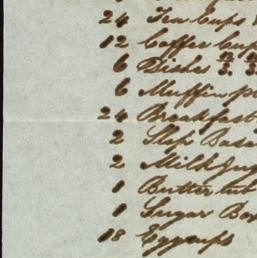 24 Tea Cups
12 Coffee Cup
6 Dishes
6 Muffin
24 Breakfast
2 Slop Bas
2 Milk Jug
1 Butter tub
1 Sugar Bo
18 Eggcups